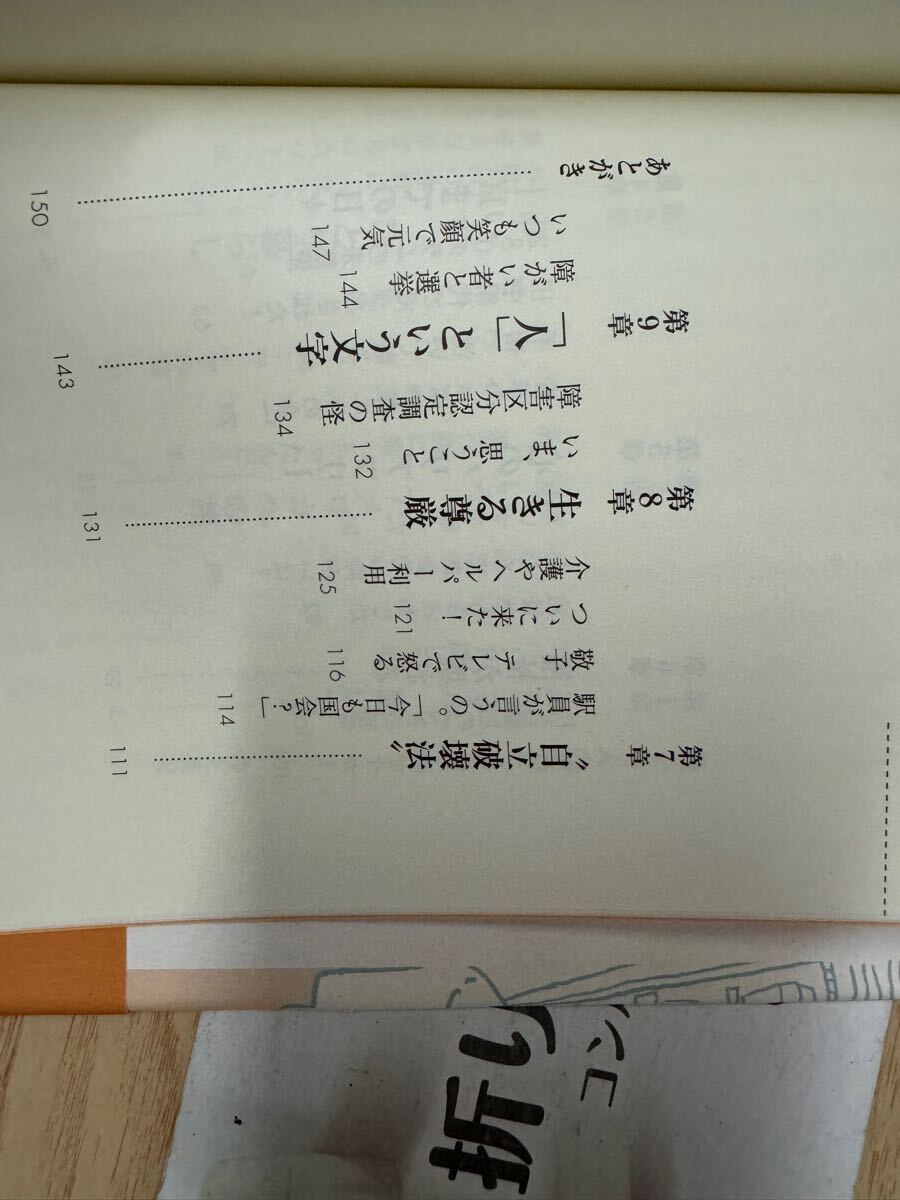 第7章 〝自立破壊法〟 111
駅員が言うの。「今日も国会?」 114
敬子 テレビで怒る 116
ついに来た! 121
介護やヘルパー利用 125
第8章 生きる尊厳 131
いま、思うこと 132
障害区分認定調査の怪 134
第9章 「人」という文字 143
障がい者と選挙 144
いつも笑顔で元気 147
あとがき 150
折り
コン